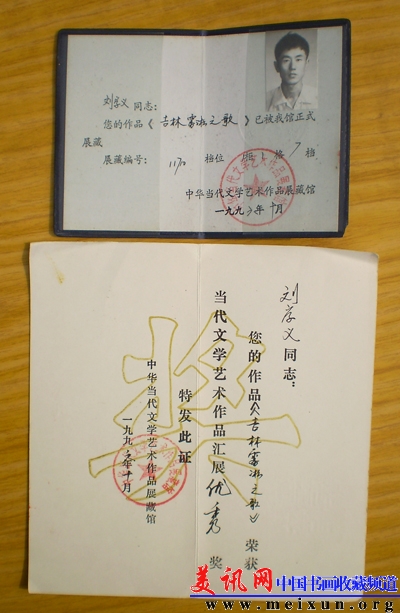 刘孝义同志：
您的作品《吉林雾凇之歌》已被我馆正式
展藏
展藏编号：1170 档位 柜 格 7 档
中华当代文学艺术作品展藏馆
一九九 年十月
奖
刘孝义同志：
您的作品《吉林雾凇之歌》荣获
当代文学艺术作品汇展优秀奖
特发此证
中华当代文学艺术作品展藏馆
一九九 年十月
美讯网 中国书画收藏频道
www.meixun.org